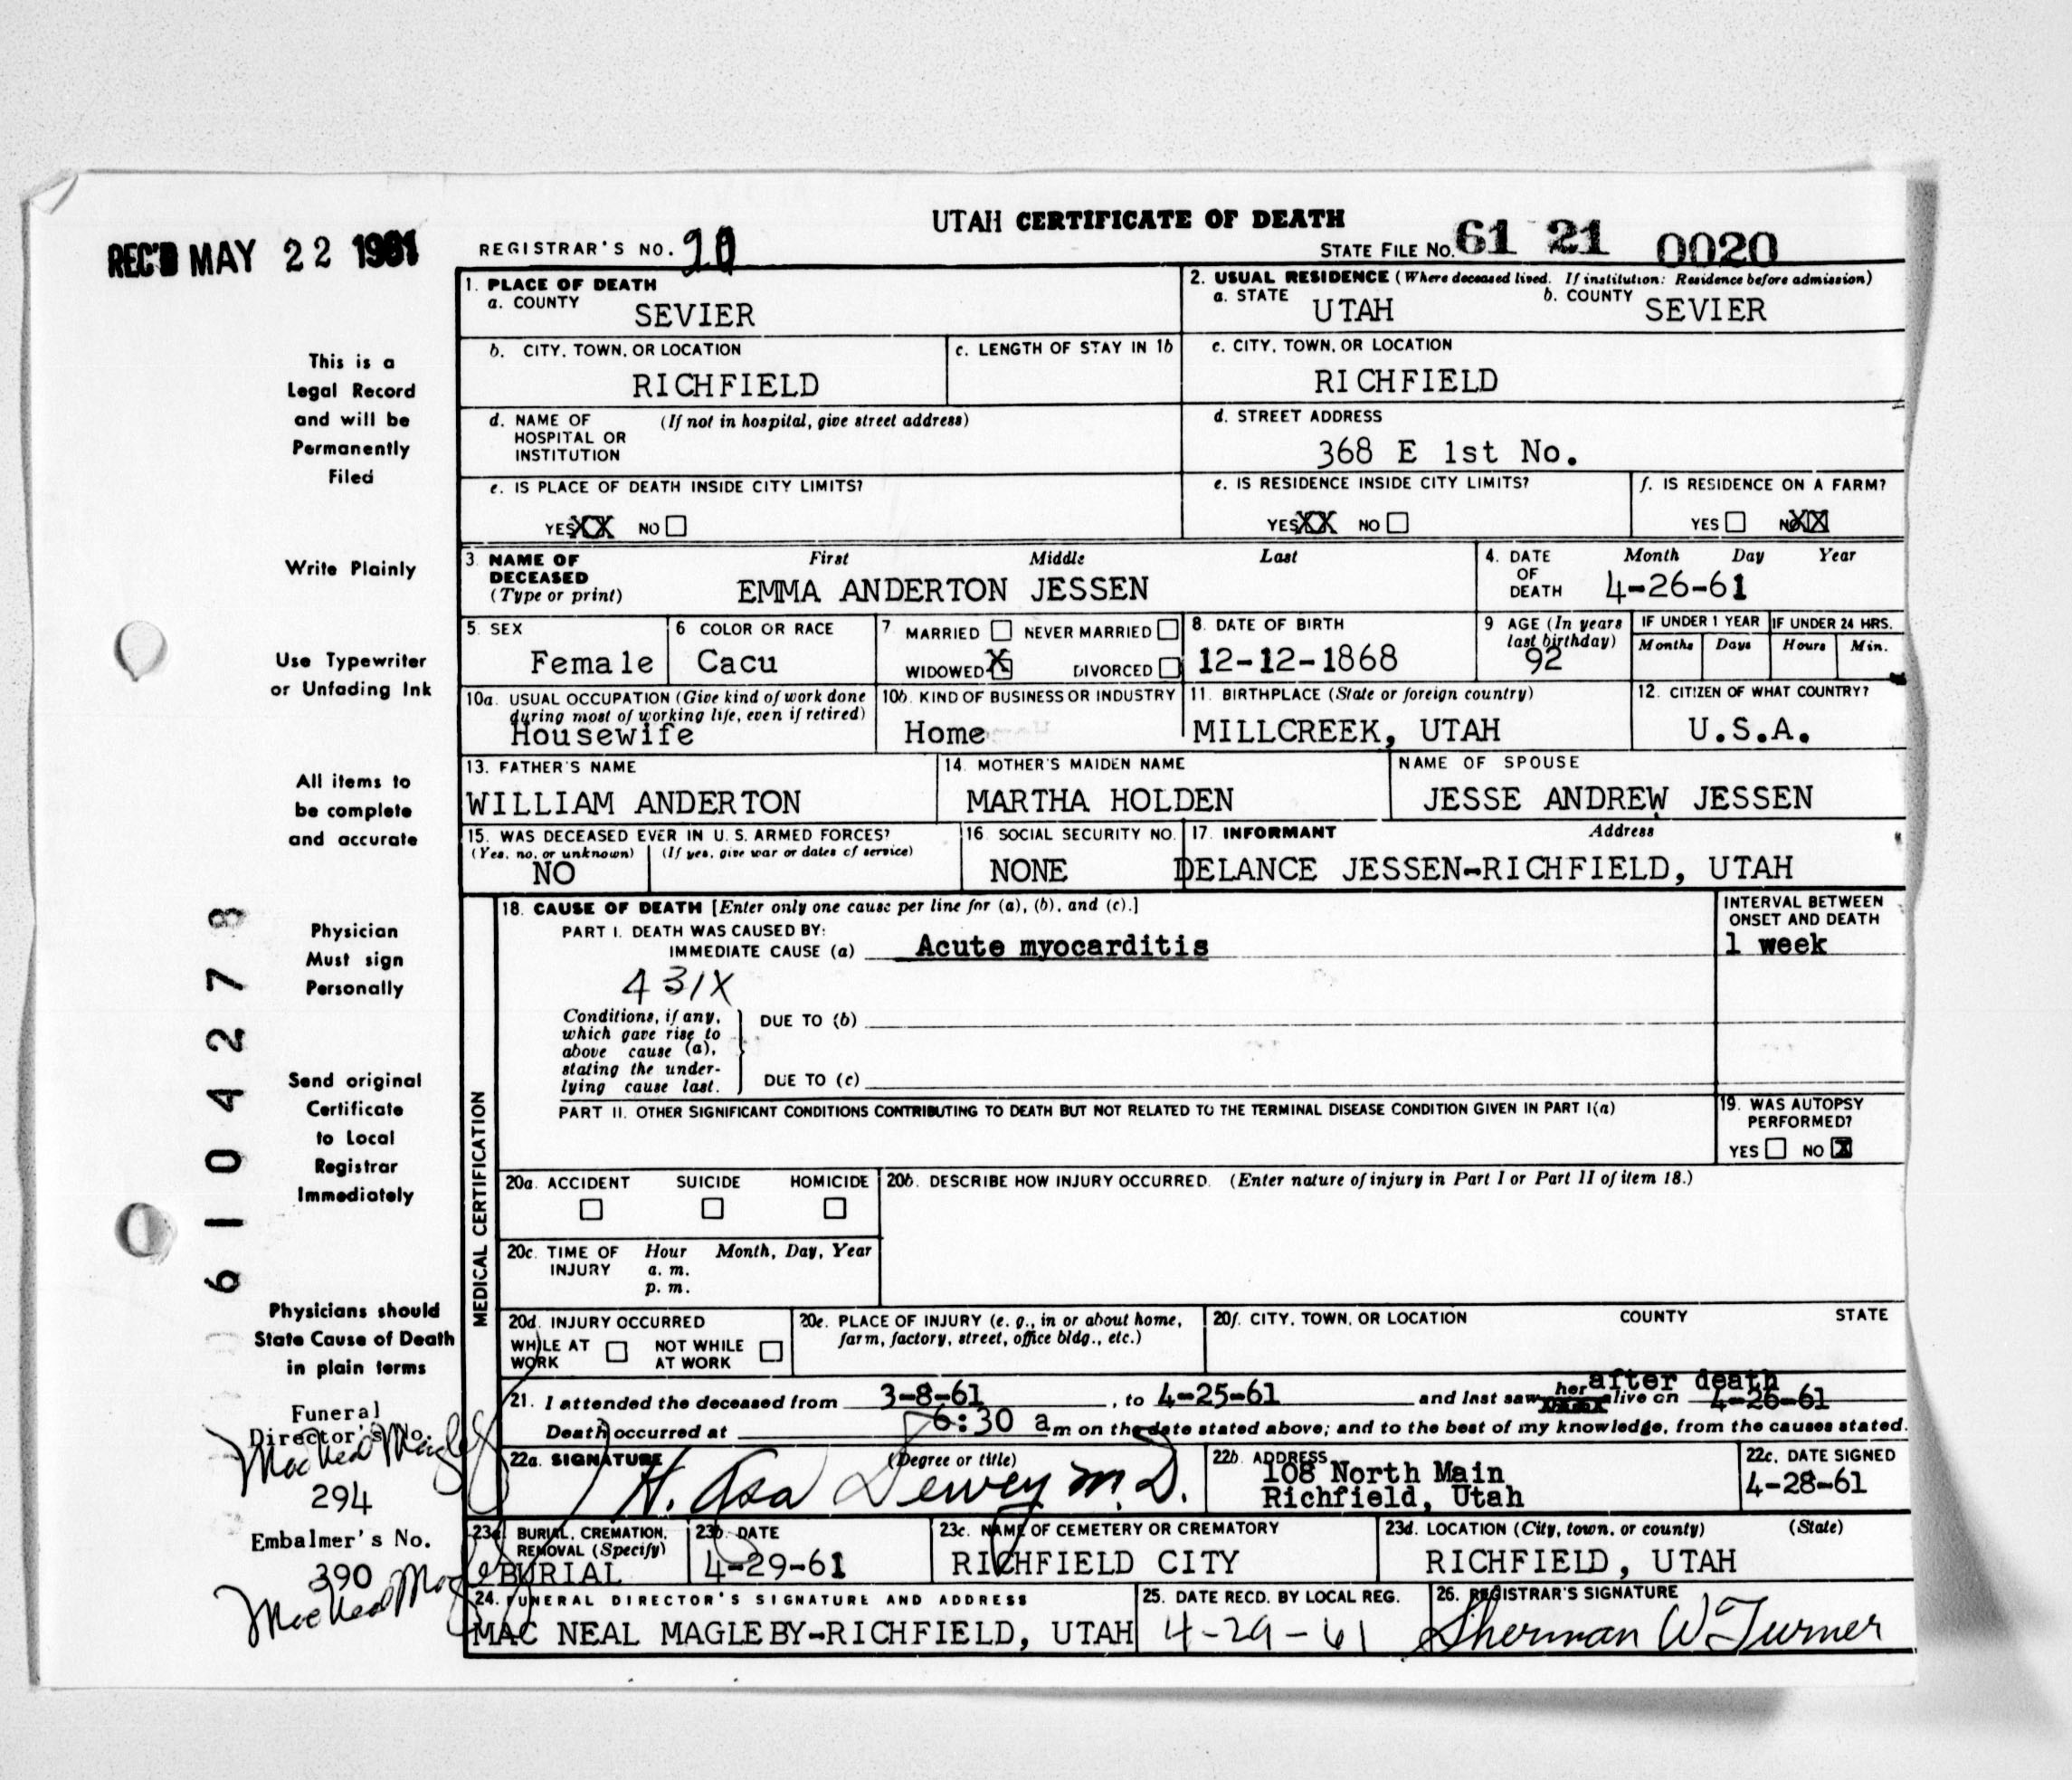 UTAH CERTIFICATE OF DEATH
REC'D MAY 22 1961
REGISTRAR'S NO.
STATE FILE NO. 61 21 0020
1. PLACE OF DEATH
a. COUNTY
SEVIER
2. USUAL RESIDENCE (Where deceased lived. If institution: Residence before admission)
a. STATE UTAH b. COUNTY SEVIER
b. CITY, TOWN, OR LOCATION
RICHFIELD
c. LENGTH OF STAY IN 1b
c. CITY, TOWN, OR LOCATION
RICHFIELD
d. NAME OF HOSPITAL OR INSTITUTION (If not in hospital, give street address)
d. STREET ADDRESS
368 E 1st No.
e. IS PLACE OF DEATH INSIDE CITY LIMITS?
YES XX NO
e. IS RESIDENCE INSIDE CITY LIMITS?
YES XX NO
f. IS RESIDENCE ON A FARM?
YES NO XX
3. NAME OF DECEASED (Type or print) First Middle Last
EMMA ANDERTON JESSEN
4. DATE OF DEATH Month Day Year
4-26-61
5. SEX
Female
6 COLOR OR RACE
Cacu
7 MARRIED NEVER MARRIED
WIDOWED X DIVORCED
8. DATE OF BIRTH
12-12-1868
9 AGE (In years last birthday)
92
IF UNDER 1 YEAR
Months Days
IF UNDER 24 HRS.
Hours Min.
10a. USUAL OCCUPATION (Give kind of work done during most of working life, even if retired)
Housewife
10b. KIND OF BUSINESS OR INDUSTRY
Home
11. BIRTHPLACE (State or foreign country)
MILLCREEK, UTAH
12. CITIZEN OF WHAT COUNTRY?
U.S.A.
13. FATHER'S NAME
WILLIAM ANDERTON
14. MOTHER'S MAIDEN NAME
MARTHA HOLDEN
NAME OF SPOUSE
JESSE ANDREW JESSEN
15. WAS DECEASED EVER IN U. S. ARMED FORCES?
(Yes, no, or unknown) (If yes, give war or dates of service)
NO
16. SOCIAL SECURITY NO.
NONE
17. INFORMANT Address
DELANCE JESSEN-RICHFIELD, UTAH
MEDICAL CERTIFICATION
18. CAUSE OF DEATH [Enter only one cause per line for (a), (b), and (c).]
PART I. DEATH WAS CAUSED BY:
IMMEDIATE CAUSE (a) Acute myocarditis
INTERVAL BETWEEN ONSET AND DEATH
1 week
431X
Conditions, if any, which gave rise to above cause (a), stating the underlying cause last.
DUE TO (b)
DUE TO (c)
PART II. OTHER SIGNIFICANT CONDITIONS CONTRIBUTING TO DEATH BUT NOT RELATED TO THE TERMINAL DISEASE CONDITION GIVEN IN PART I(a)
19. WAS AUTOPSY PERFORMED?
YES NO X
20a. ACCIDENT SUICIDE HOMICIDE
20b. DESCRIBE HOW INJURY OCCURRED. (Enter nature of injury in Part I or Part II of item 18.)
20c. TIME OF INJURY Hour Month, Day, Year
a. m.
p. m.
20d. INJURY OCCURRED
WHILE AT WORK NOT WHILE AT WORK
20e. PLACE OF INJURY (e. g., in or about home, farm, factory, street, office bldg., etc.)
20f. CITY, TOWN, OR LOCATION COUNTY STATE
after death
21. I attended the deceased from 3-8-61, to 4-25-61 and last saw her alive on 4-26-61
Death occurred at 6:30 a m on the date stated above; and to the best of my knowledge, from the causes stated.
22a. SIGNATURE (Degree or title)
H. Asa Dewey M.D.
22b. ADDRESS
108 North Main
Richfield, Utah
22c. DATE SIGNED
4-28-61
23a. BURIAL, CREMATION, REMOVAL (Specify)
BURIAL
23b. DATE
4-29-61
23c. NAME OF CEMETERY OR CREMATORY
RICHFIELD CITY
23d. LOCATION (City, town, or county) (State)
RICHFIELD, UTAH
24. FUNERAL DIRECTOR'S SIGNATURE AND ADDRESS
MAC NEAL MAGLEBY-RICHFIELD, UTAH
25. DATE RECD. BY LOCAL REG.
4-29-61
26. REGISTRAR'S SIGNATURE
Sherman W Turner
This is a
Legal Record
and will be
Permanently
Filed
Write Plainly
Use Typewriter
or Unfading Ink
All items to
be complete
and accurate
Physician
Must sign
Personally
Send original
Certificate
to Local
Registrar
Immediately
Physicians should
State Cause of Death
in plain terms
Funeral
Director's No.
Mac Neal Magleby
294
Embalmer's No.
390
Mac Neal Magleby
6104278